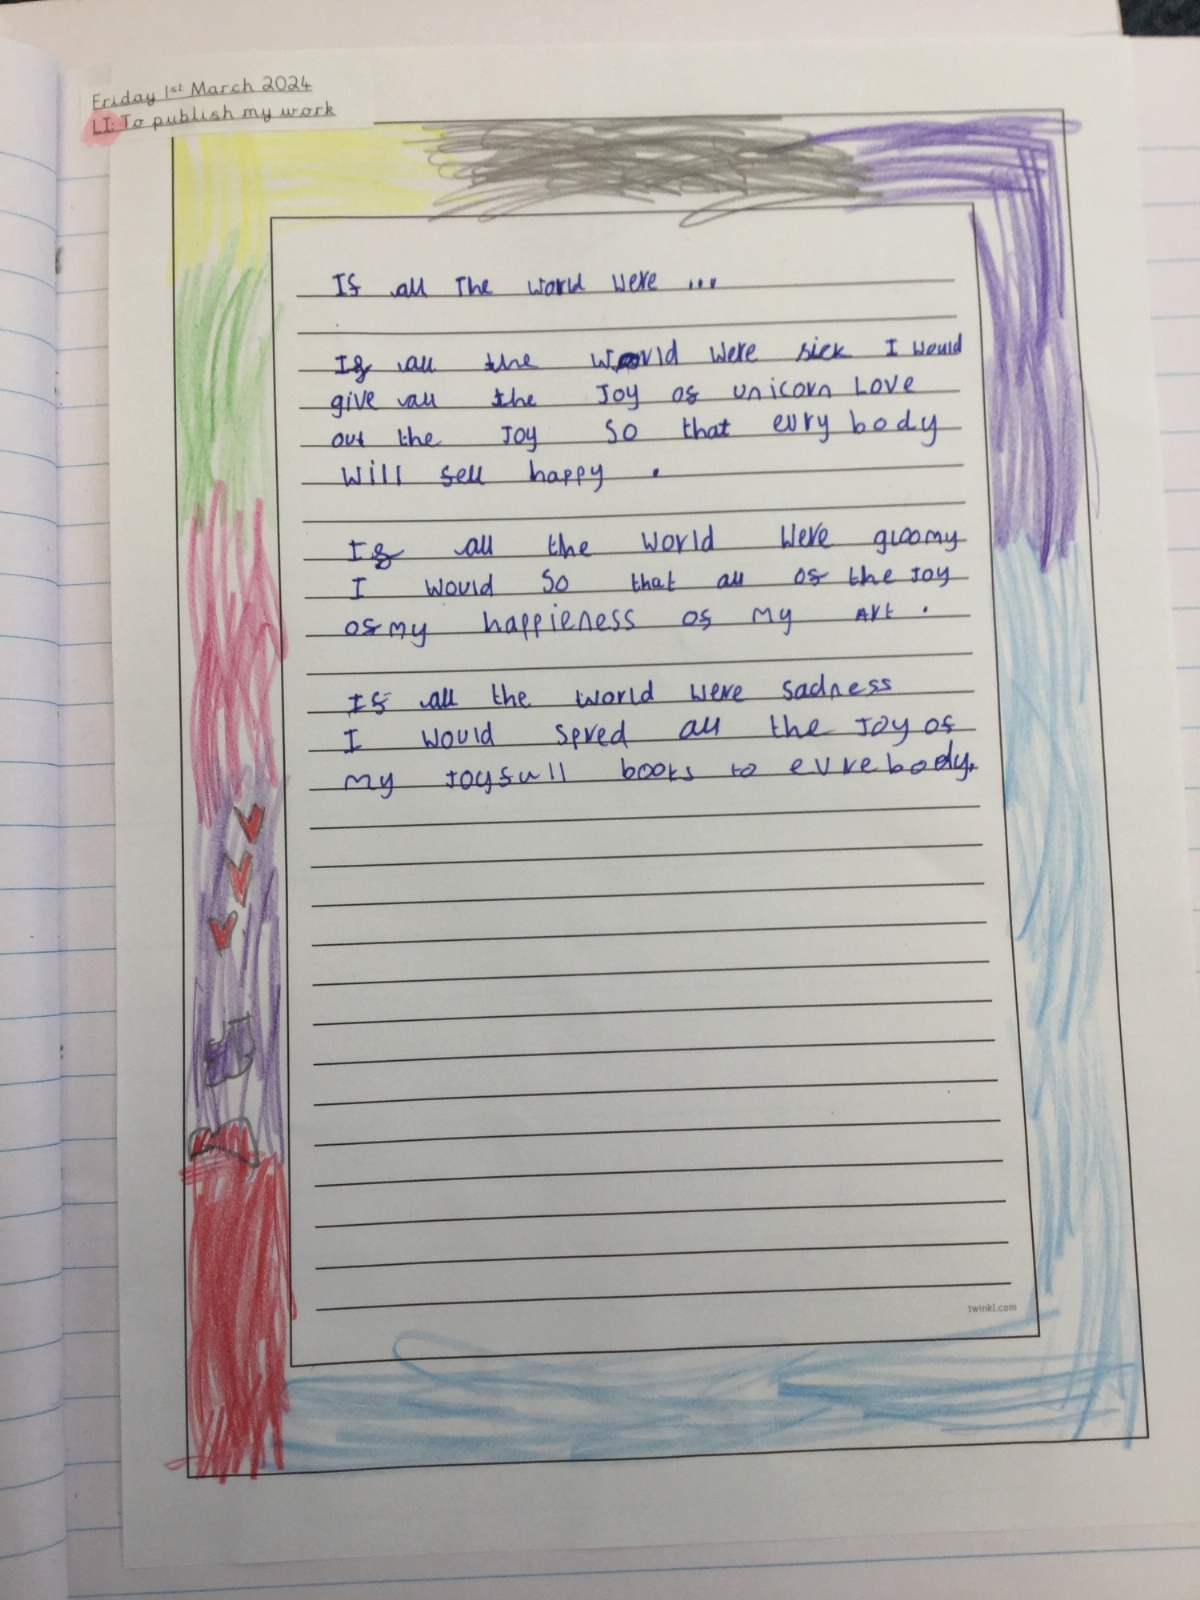 Friday 1st March 2024
LI: To publish my work
If all The world were ...
If all the world were sick I would
give all the Joy of unicorn Love
out the Joy So that evry body
will fell happy .
If all the world were gloomy
I would So that all of the Joy
of my happieness of my Art .
If all the world were sadness
I would spred all the Joy of
my Joyfull books to evrebody.
twinkl.com